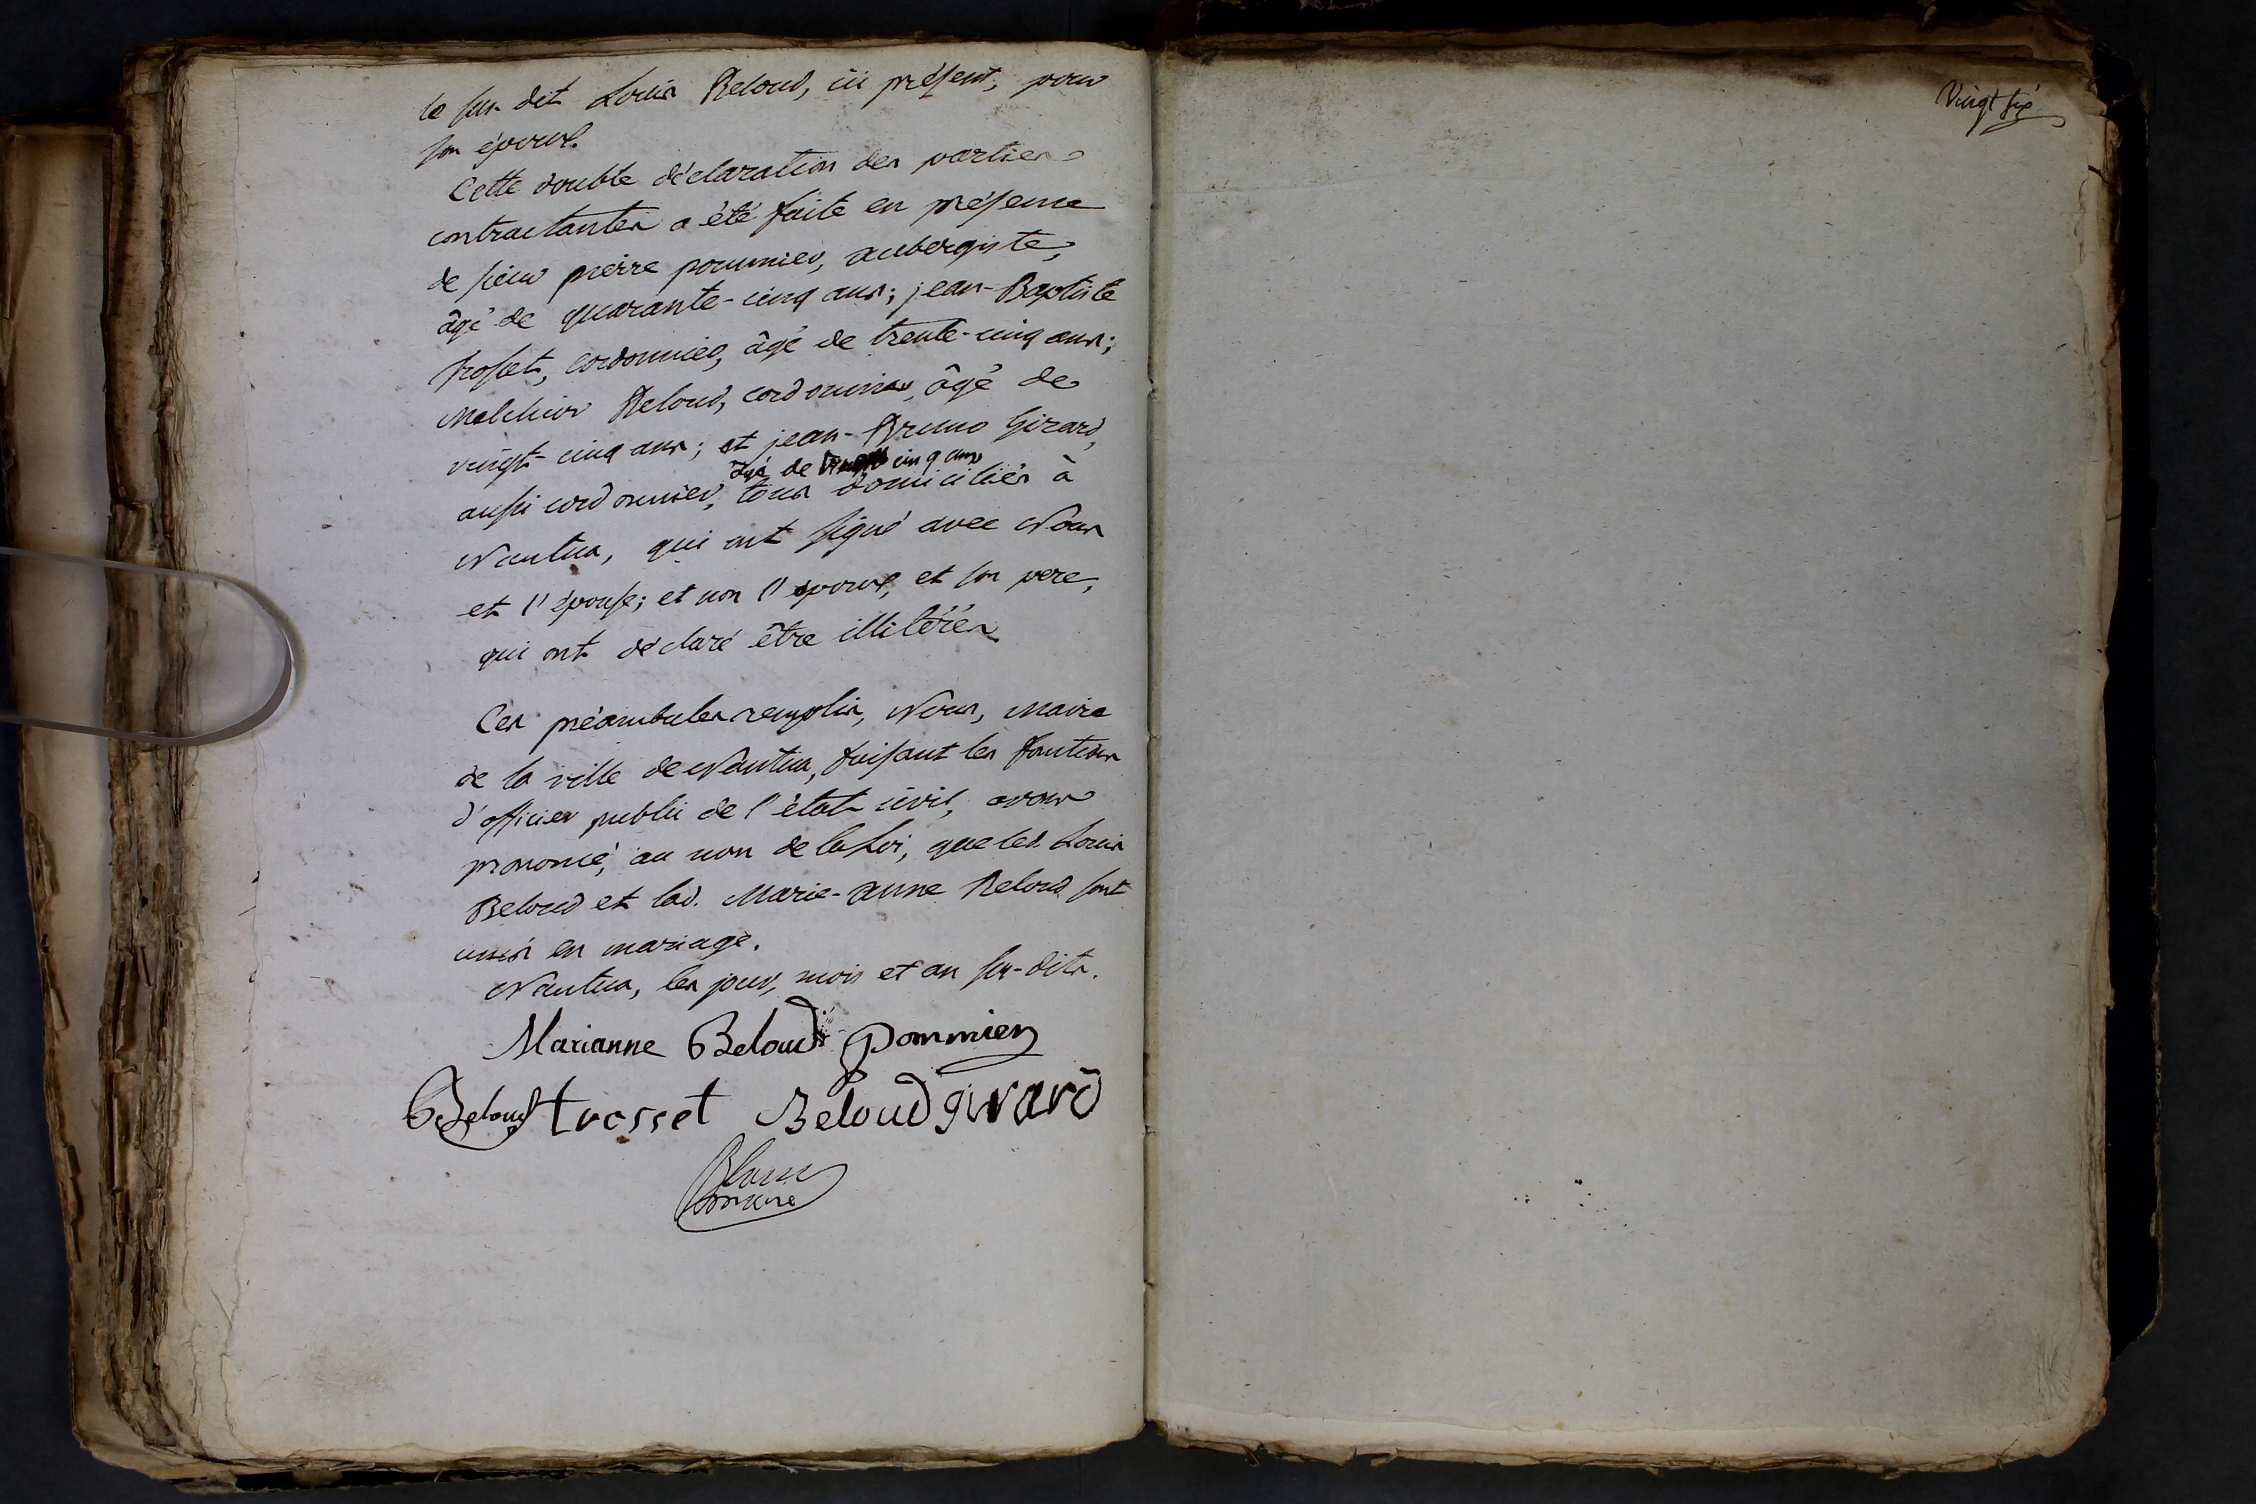 le sus-dit Louis Beloud, ici présent, pour
son époux.
Cette double déclaration des parties
contractantes a été faite en présence
de sieur pierre pommier, aubergiste,
âgé de quarante-cinq ans; jean-Baptiste
trosset, cordonnier, âgé de trente-cinq ans;
Melchior Beloud, cordonnier, âgé de
vingt-cinq ans; et jean-Bruno Girard,
âgé de vingt cinq ans
aussi cordonnier, tous domiciliés à
Nantua, qui ont signé avec Nous
et l'épouse; et non l'époux, et son pere,
qui ont déclaré être illitérés
Ces préambules remplis, Nous, Maire
de la ville de Nantua, faisant les fonctions
d'officier public de l'état civil, avons
prononcé, au nom de la Loi, que led. Louis
Beloud et lad. Marie-anne Beloud sont
unis en mariage.
Nantua, les jour, mois et an sus-dits.
Marianne Beloud pommier
Beloud trosset Beloud girard
Vingt six